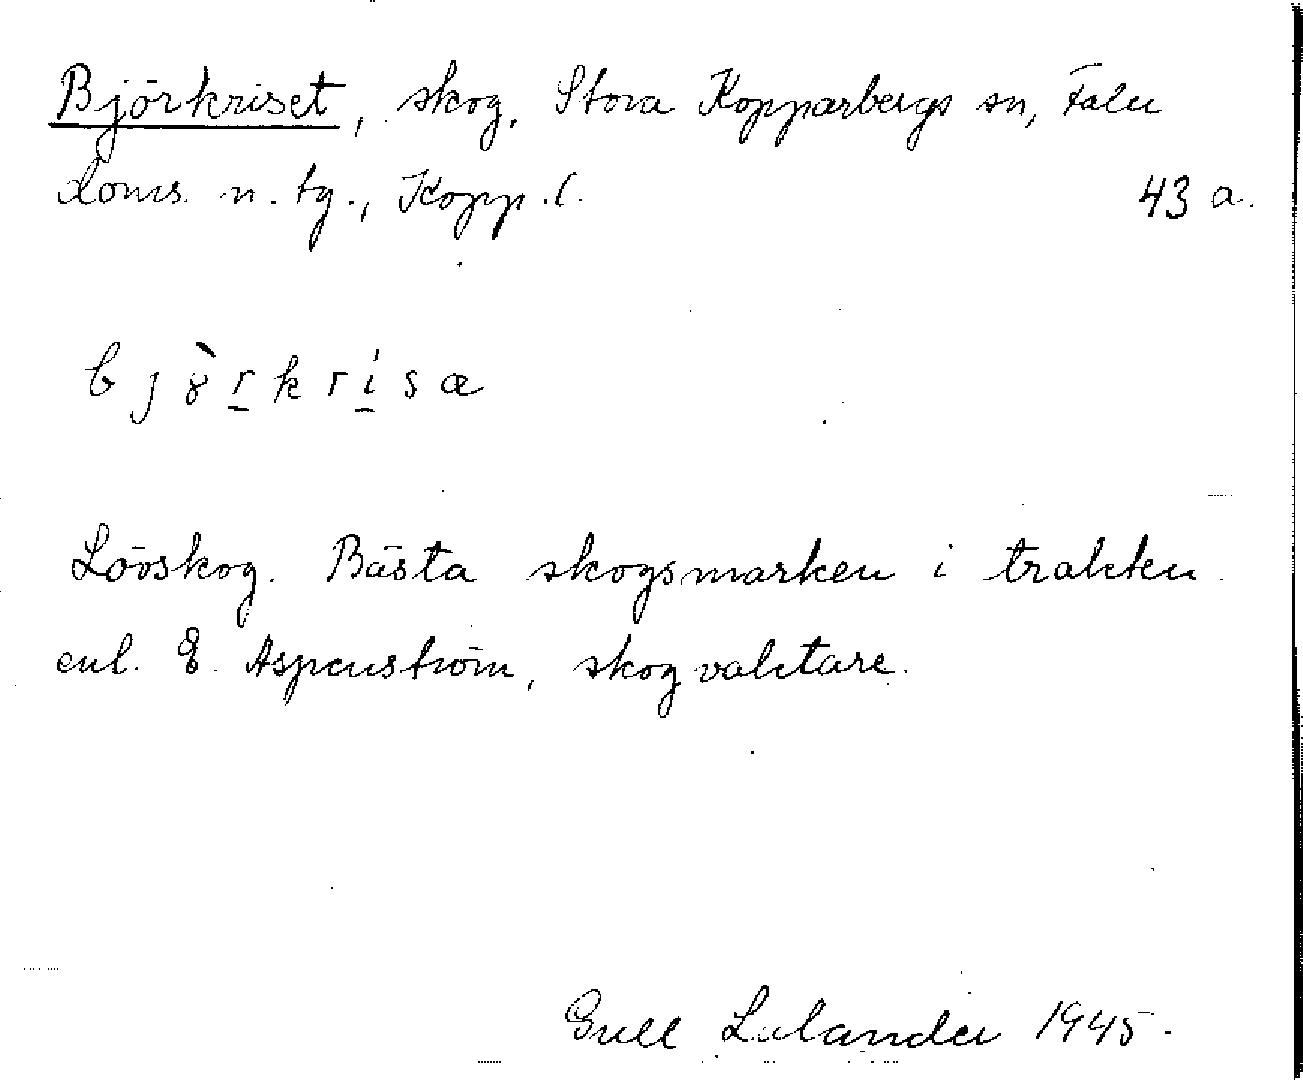 Björkriset, skog, Stora Kopparbergs sn, Falu
doms. n. tg., Kopp. l.
43 a.
bjɞ̀rkrisa
Lövskog. Bästa skogsmarken i trakten
enl. E. Aspenström, skogvaktare.
Gull Lulander 1945.